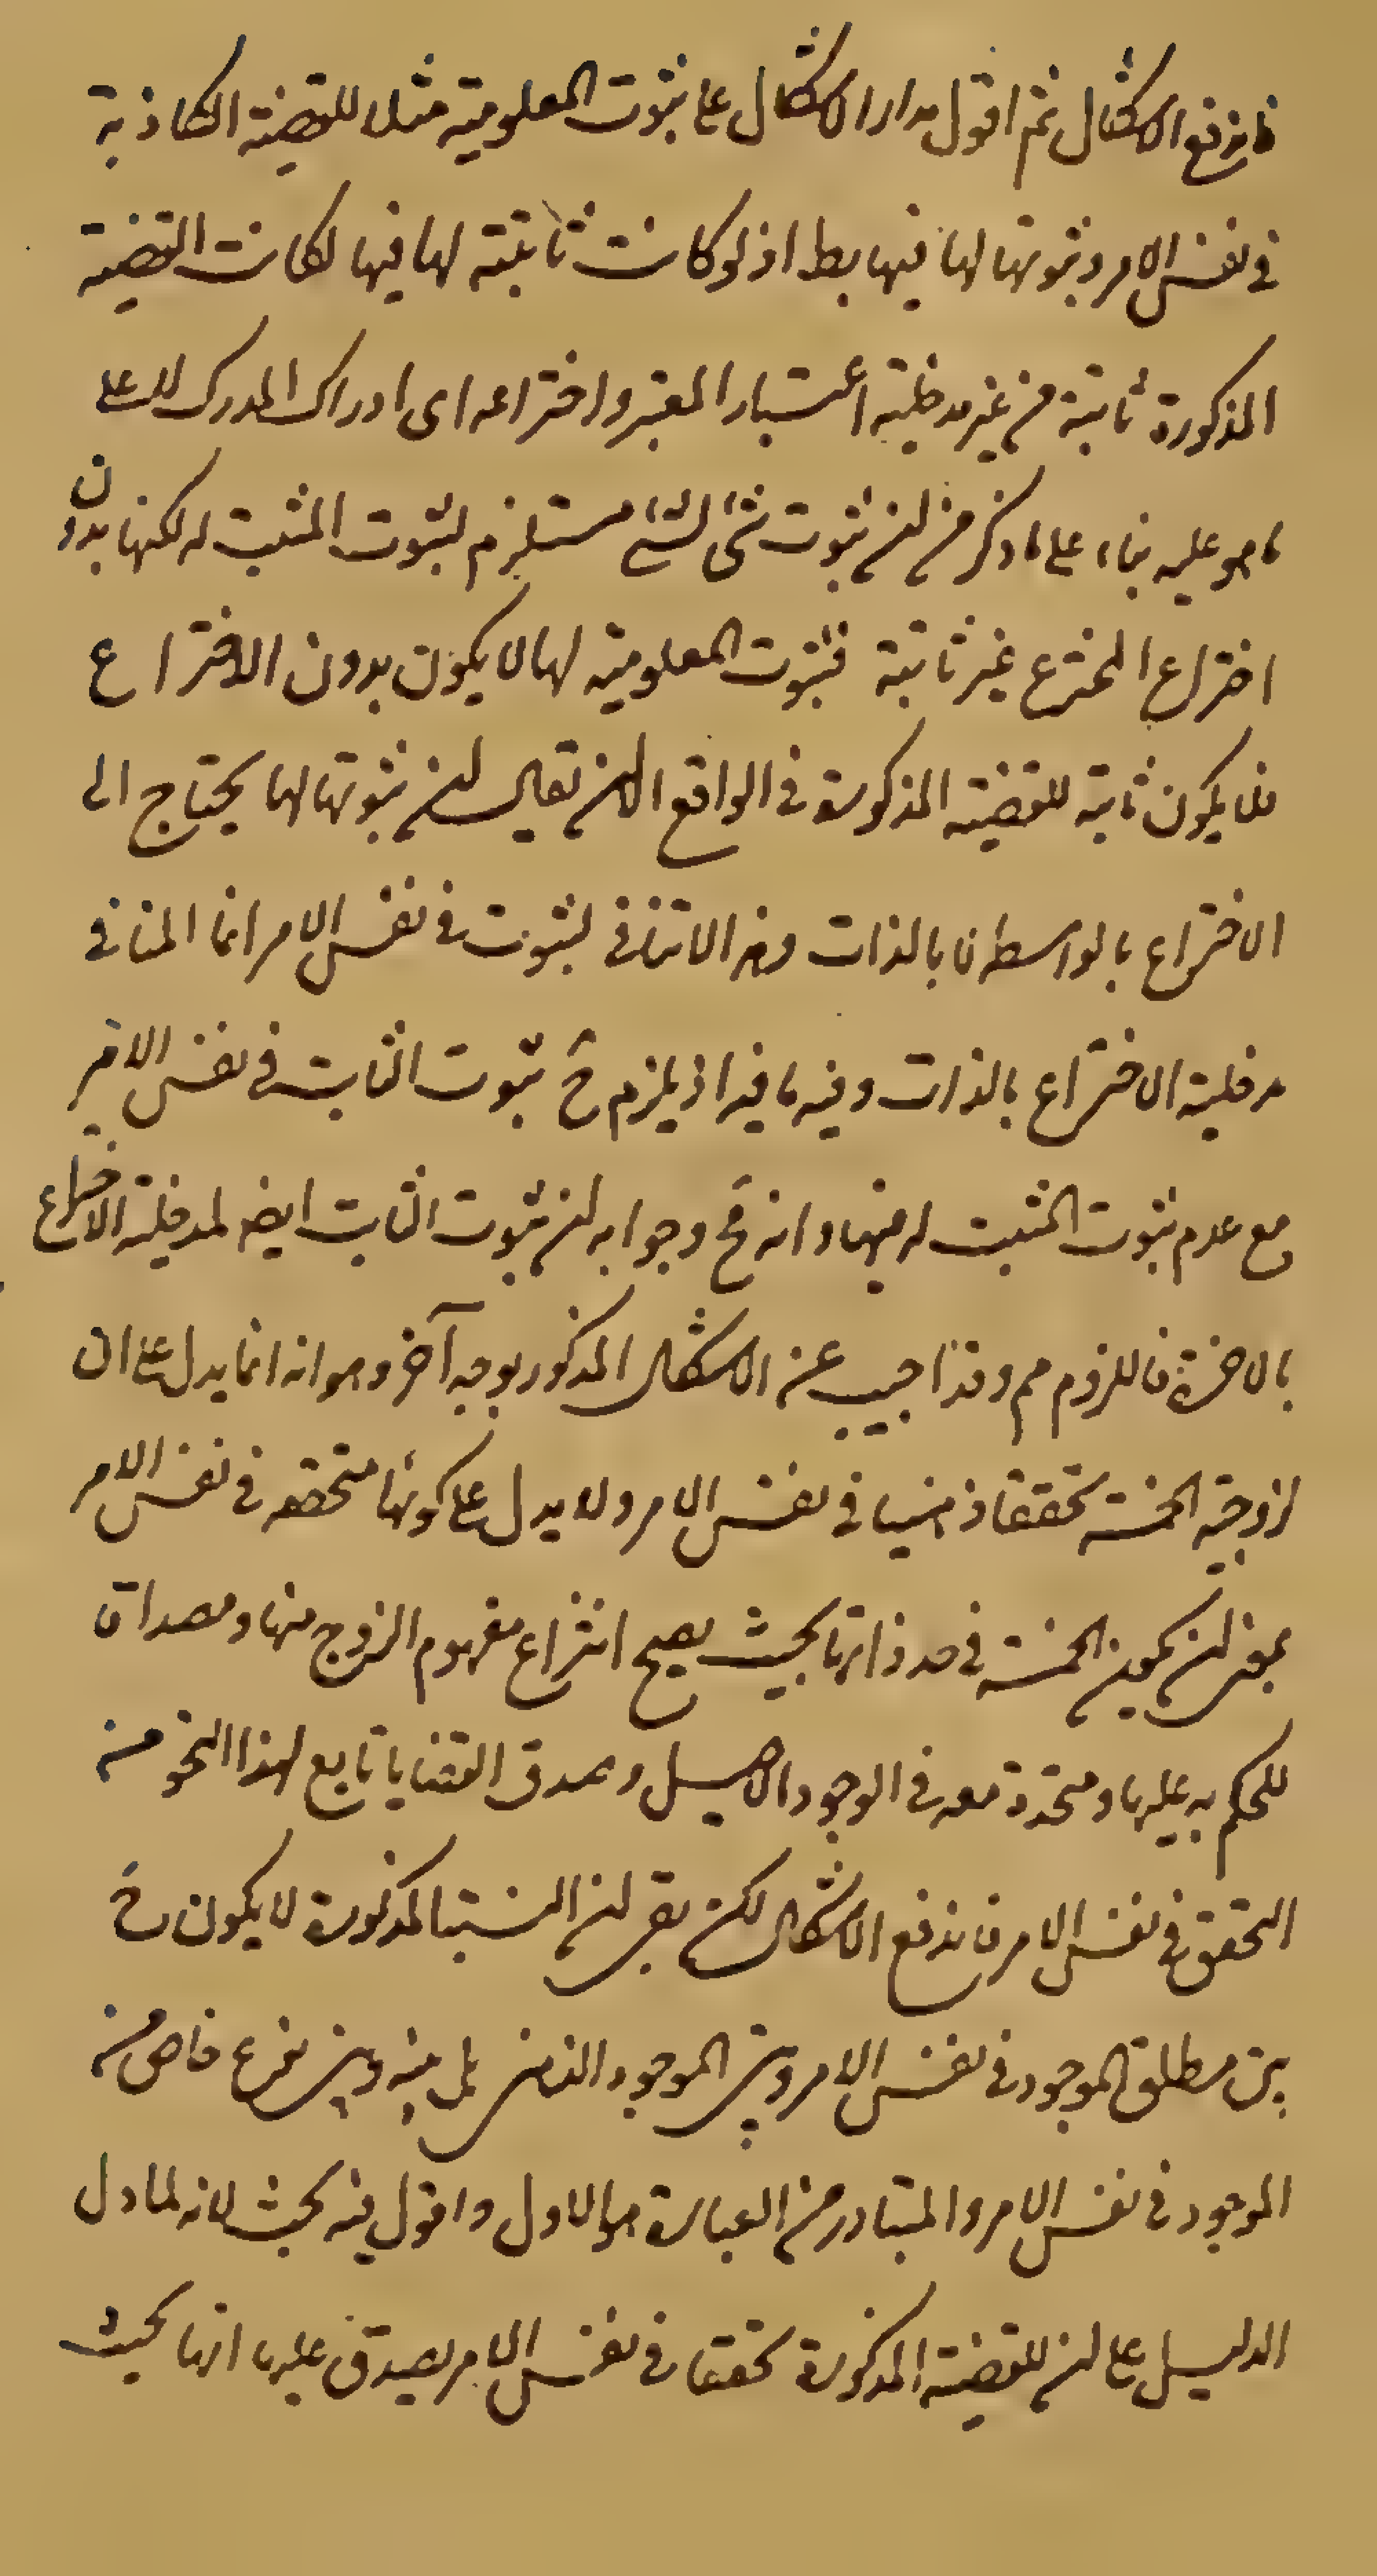 فاندفع الاشكال ثم اقول مدار الاشكال على ثبوت المعلومية مثلا للقضية الكاذبة
في نفس الامر وثبوتها لها فيها بط اذ لو كانت ثابتة لها فيها لكانت القضية
المذكورة ثابتة من غير مدخلية اعتبار المعتبر واختراعه اي ادراك المدرك لا على
ما هو عليه بناء على ما ذكر من ان ثبوت شئ لشئ مستلزم لثبوت المثبت له لكنها بدون
اختراع المخترع غير ثابتة فثبوت المعلومية لها لا يكون بدون الاختراع
فلا يكون ثابتة للقضية المذكورة في الواقع الا ان يقال ان ثبوتها لها يحتاج الى
الاختراع بالواسطة لا بالذات وهذا لا ينافي لثبوت في نفس الامر انما المنافي
مدخلية الاختراع بالذات وفيه ما فيه اذ يلزم ح ثبوت الثابت في نفس الامر
مع عدم ثبوت المثبت له فيها وانه مح وجوابه ان ثبوت الثابت ايضا لمدخلية الاختراع
بالاخرة فاللزوم مم وقد اجيب عن الاشكال المذكور بوجه آخر وهو انه انما يدل على ان
لزوجية الخمسة تحققا ذهنيا في نفس الامر ولا يدل على كونها متحققة في نفس الامر
بمعنى ان يكون الخمسة في حد ذاتها بحيث يصح انتزاع مفهوم الزوج منها ومصداقا
للحكم به عليها ومتحدة معه في الوجود الاصيل وصدق القضايا تابع لهذا النحو من
التحقق في نفس الامر فاندفع الاشكال لكن بقي ان النسبة المذكورة لا يكون ح
بين مطلق الموجود في نفس الامر وبين الموجود الذهني بل بينه وبين نوع خاص من
الموجود في نفس الامر والمتبادر من العبارة هو الاول واقول فيه بحث لانه لما دل
الدليل على ان للقضية المذكورة تحققا في نفس الامر يصدق عليها انها بحيث